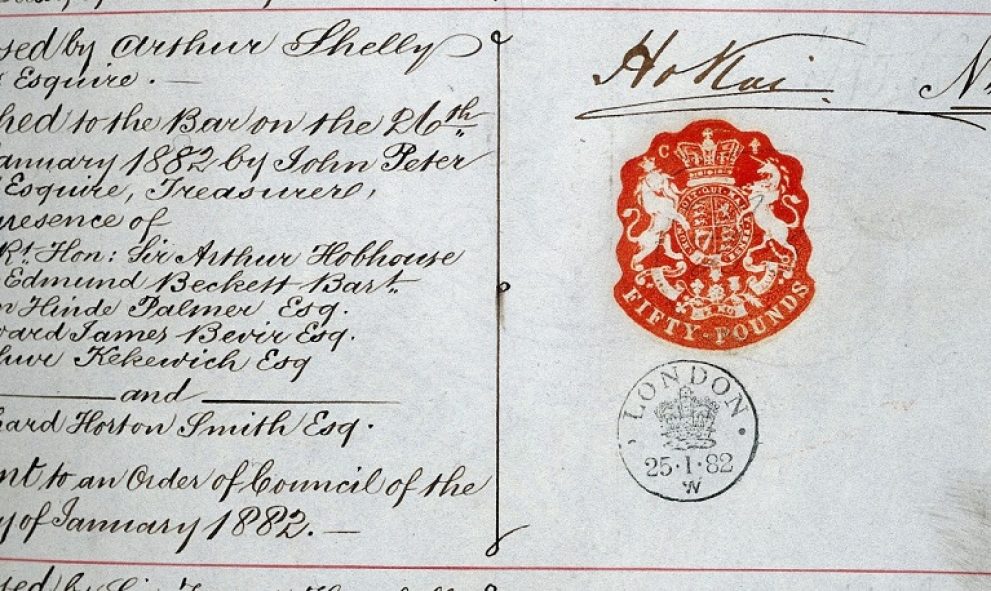 sed by Arthur Shelly
Esquire. —
hed to the Bar on the 26th
anuary 1882 by John Peter
Esquire, Treasurer,
resence of
Rt. Hon: Sir Arthur Hobhouse
Edmund Beckett Bart.
n Hinde Palmer Esq.
ward James Bevir Esq.
Kekewich Esq
— and —
hard Horton Smith Esq.
nt to an Order of Council of the
y of January 1882. —
sed by Sir
Ho Kai.
N
C
FIFTY·POUNDS
LONDON
25·1·82
W